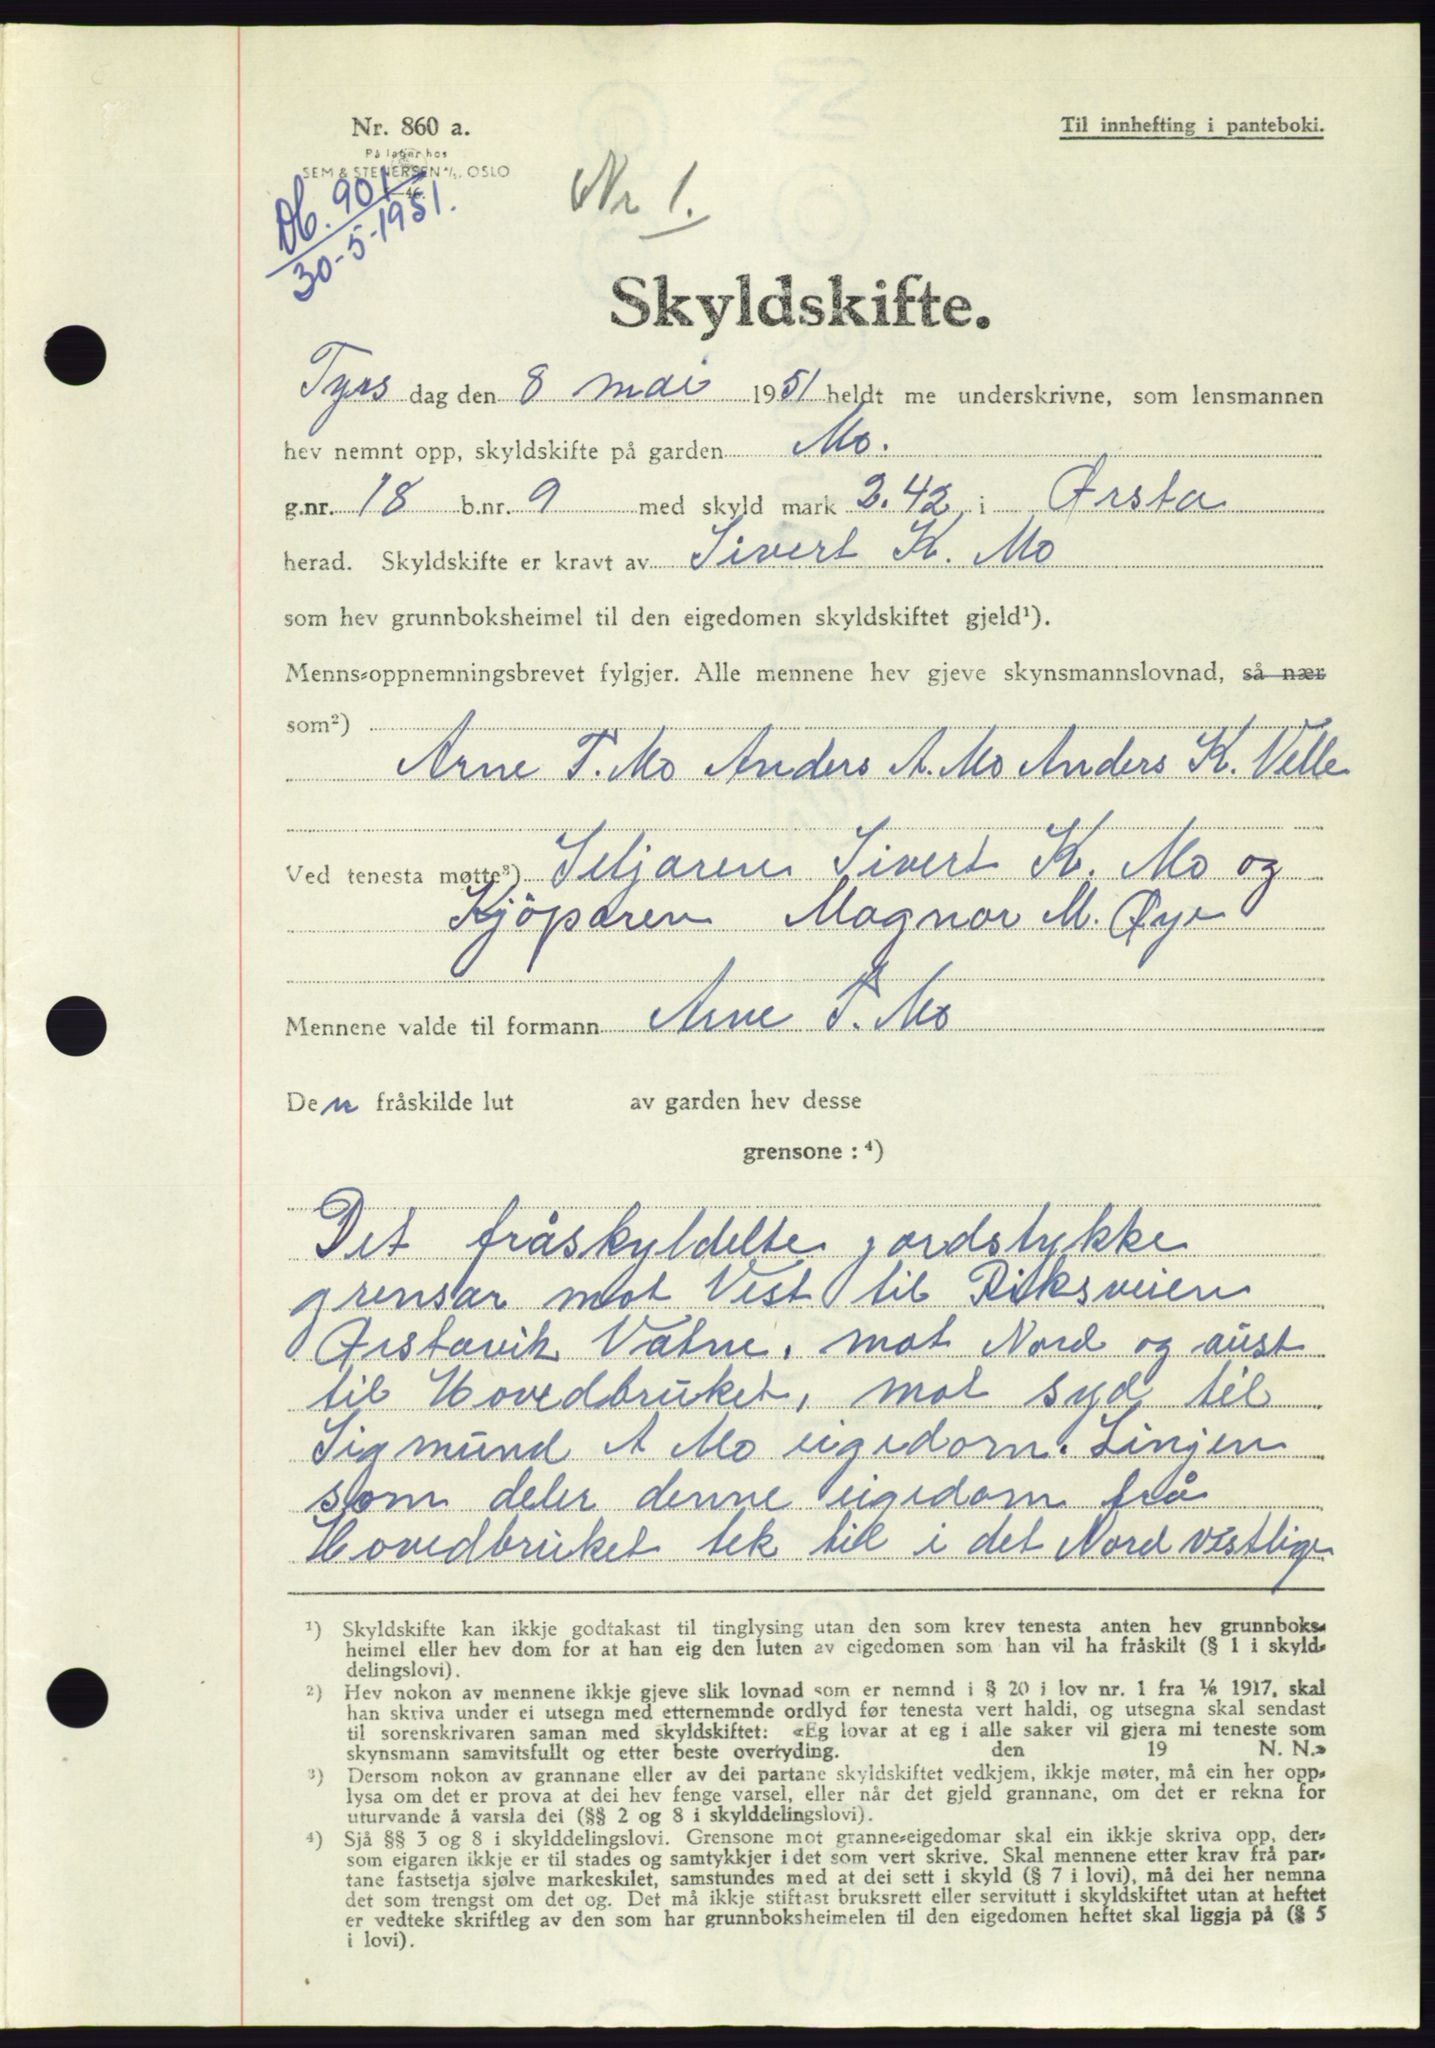 Nr. 860 a.
Til innhefting i panteboki.
På lager hos
SEM & STENERSEN A/S, OSLO
Db. 901
30-5-1951.
Nr 1.
Skyldskifte.
Tyrs dag den 8 mai 1951 heldt me underskrivne, som lensmannen
hev nemnt opp, skyldskifte på garden Mo.
g.nr. 18 b.nr. 9 med skyld mark 2.42 i Ørsta
herad. Skyldskifte er kravt av Sivert K. Mo
som hev grunnboksheimel til den eigedomen skyldskiftet gjeld¹).
Menns-oppnemningsbrevet fylgjer. Alle mennene hev gjeve skynsmannslovnad, så nær
som²)
Arne T. Mo Anders A. Mo Anders K. Velle
Ved tenesta møtte³) Seljaren Sivert K. Mo og
Kjöparen Magnar M. Øye
Mennene valde til formann Arne T. Mo
Den fråskilde lut av garden hev desse
grensone : ⁴)
Det fråskyldelte jordstykke
grensar mot Vest til Riksveien
Ørstavik Vatne. mot Nord og aust
til Hovedbruket, mot syd til
Sigmund A Mo eigedom. Linjen
som deler denne eigedom frå
Hovedbruket tek til i det Nord vestlige
¹) Skyldskifte kan ikkje godtakast til tinglysing utan den som krev tenesta anten hev grunnboks-
heimel eller hev dom for at han eig den luten av eigedomen som han vil ha fråskilt (§ 1 i skyld-
delingslovi).
²) Hev nokon av mennene ikkje gjeve slik lovnad som er nemnd i § 20 i lov nr. 1 fra 1/6 1917, skal
han skriva under ei utsegn med etternemnde ordlyd før tenesta vert haldi, og utsegna skal sendast
til sorenskrivaren saman med skyldskiftet: «Eg lovar at eg i alle saker vil gjera mi teneste som
skynsmann samvitsfullt og etter beste overtyding. den 19 N. N.»
³) Dersom nokon av grannane eller av dei partane skyldskiftet vedkjem, ikkje møter, må ein her opp-
lysa om det er prova at dei hev fenge varsel, eller når det gjeld grannane, om det er rekna for
uturvande å varsla dei (§§ 2 og 8 i skylddelingslovi).
⁴) Sjå §§ 3 og 8 i skylddelingslovi. Grensone mot granne-eigedomar skal ein ikkje skriva opp, der-
som eigaren ikkje er til stades og samtykkjer i det som vert skrive. Skal mennene etter krav frå par-
tane fastsetja sjølve markeskilet, samstundes med at dei sett i skyld (§ 7 i lovi), må dei her nemna
det som trengst om det og. Det må ikkje stiftast bruksrett eller servitutt i skyldskiftet utan at heftet
er vedteke skriftleg av den som har grunnboksheimelen til den eigedomen heftet skal liggja på (§ 5
i lovi).